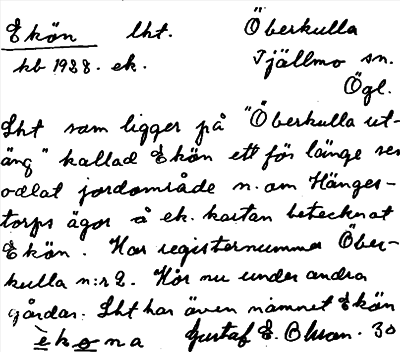 Ekön lht. Överkulla
kb 1928. ek. Tjällmo sn.
Ögl.
Lht som ligger på "Överkulla ut-
äng" kallad Ekön ett för länge sen
odlat jordområde n. om Hänges-
torps ägor å ek. kartan betecknat
Ekön. Har registernummer Över-
kulla n:r 2. Hör nu under andra
gårdar. Lht har även namnet Ekön
èkơna Gustaf E. Olsson. 30